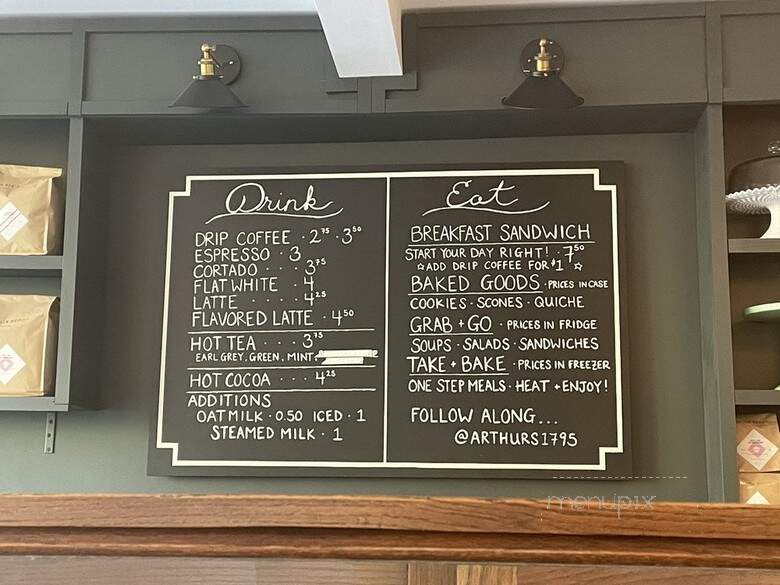 Drink
DRIP COFFEE · 2.75 · 3.50
ESPRESSO · 3
CORTADO · · · 3.75
FLAT WHITE · 4
LATTE · · · · 4.25
FLAVORED LATTE · 4.50
HOT TEA · · · 3.75
EARL GREY, GREEN, MINT
HOT COCOA · · · 4.25
ADDITIONS
OATMILK · 0.50 ICED · 1
STEAMED MILK · 1
Eat
BREAKFAST SANDWICH
START YOUR DAY RIGHT! · 7.50
☆ADD DRIP COFFEE FOR $1☆
BAKED GOODS · PRICES IN CASE
COOKIES · SCONES · QUICHE
GRAB + GO · PRICES IN FRIDGE
SOUPS · SALADS · SANDWICHES
TAKE + BAKE · PRICES IN FREEZER
ONE STEP MEALS · HEAT + ENJOY!
FOLLOW ALONG...
@ARTHURS1795
menupix